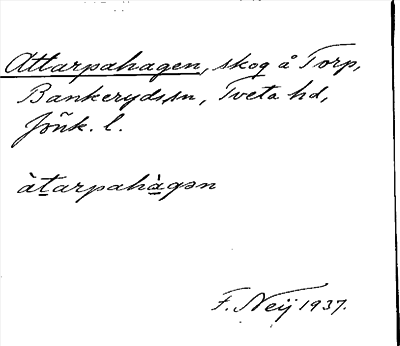 Attarpahagen, skog å Torp,
Bankeryds sn, Tveta hd,
Jönk. l.
àtarpahàgən
F. Neij 1937.